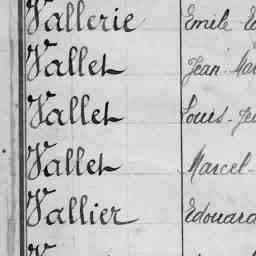 Vallerie Emile
Vallet Jean
Vallet Louis-
Vallet Marcel-
Vallier Edouard